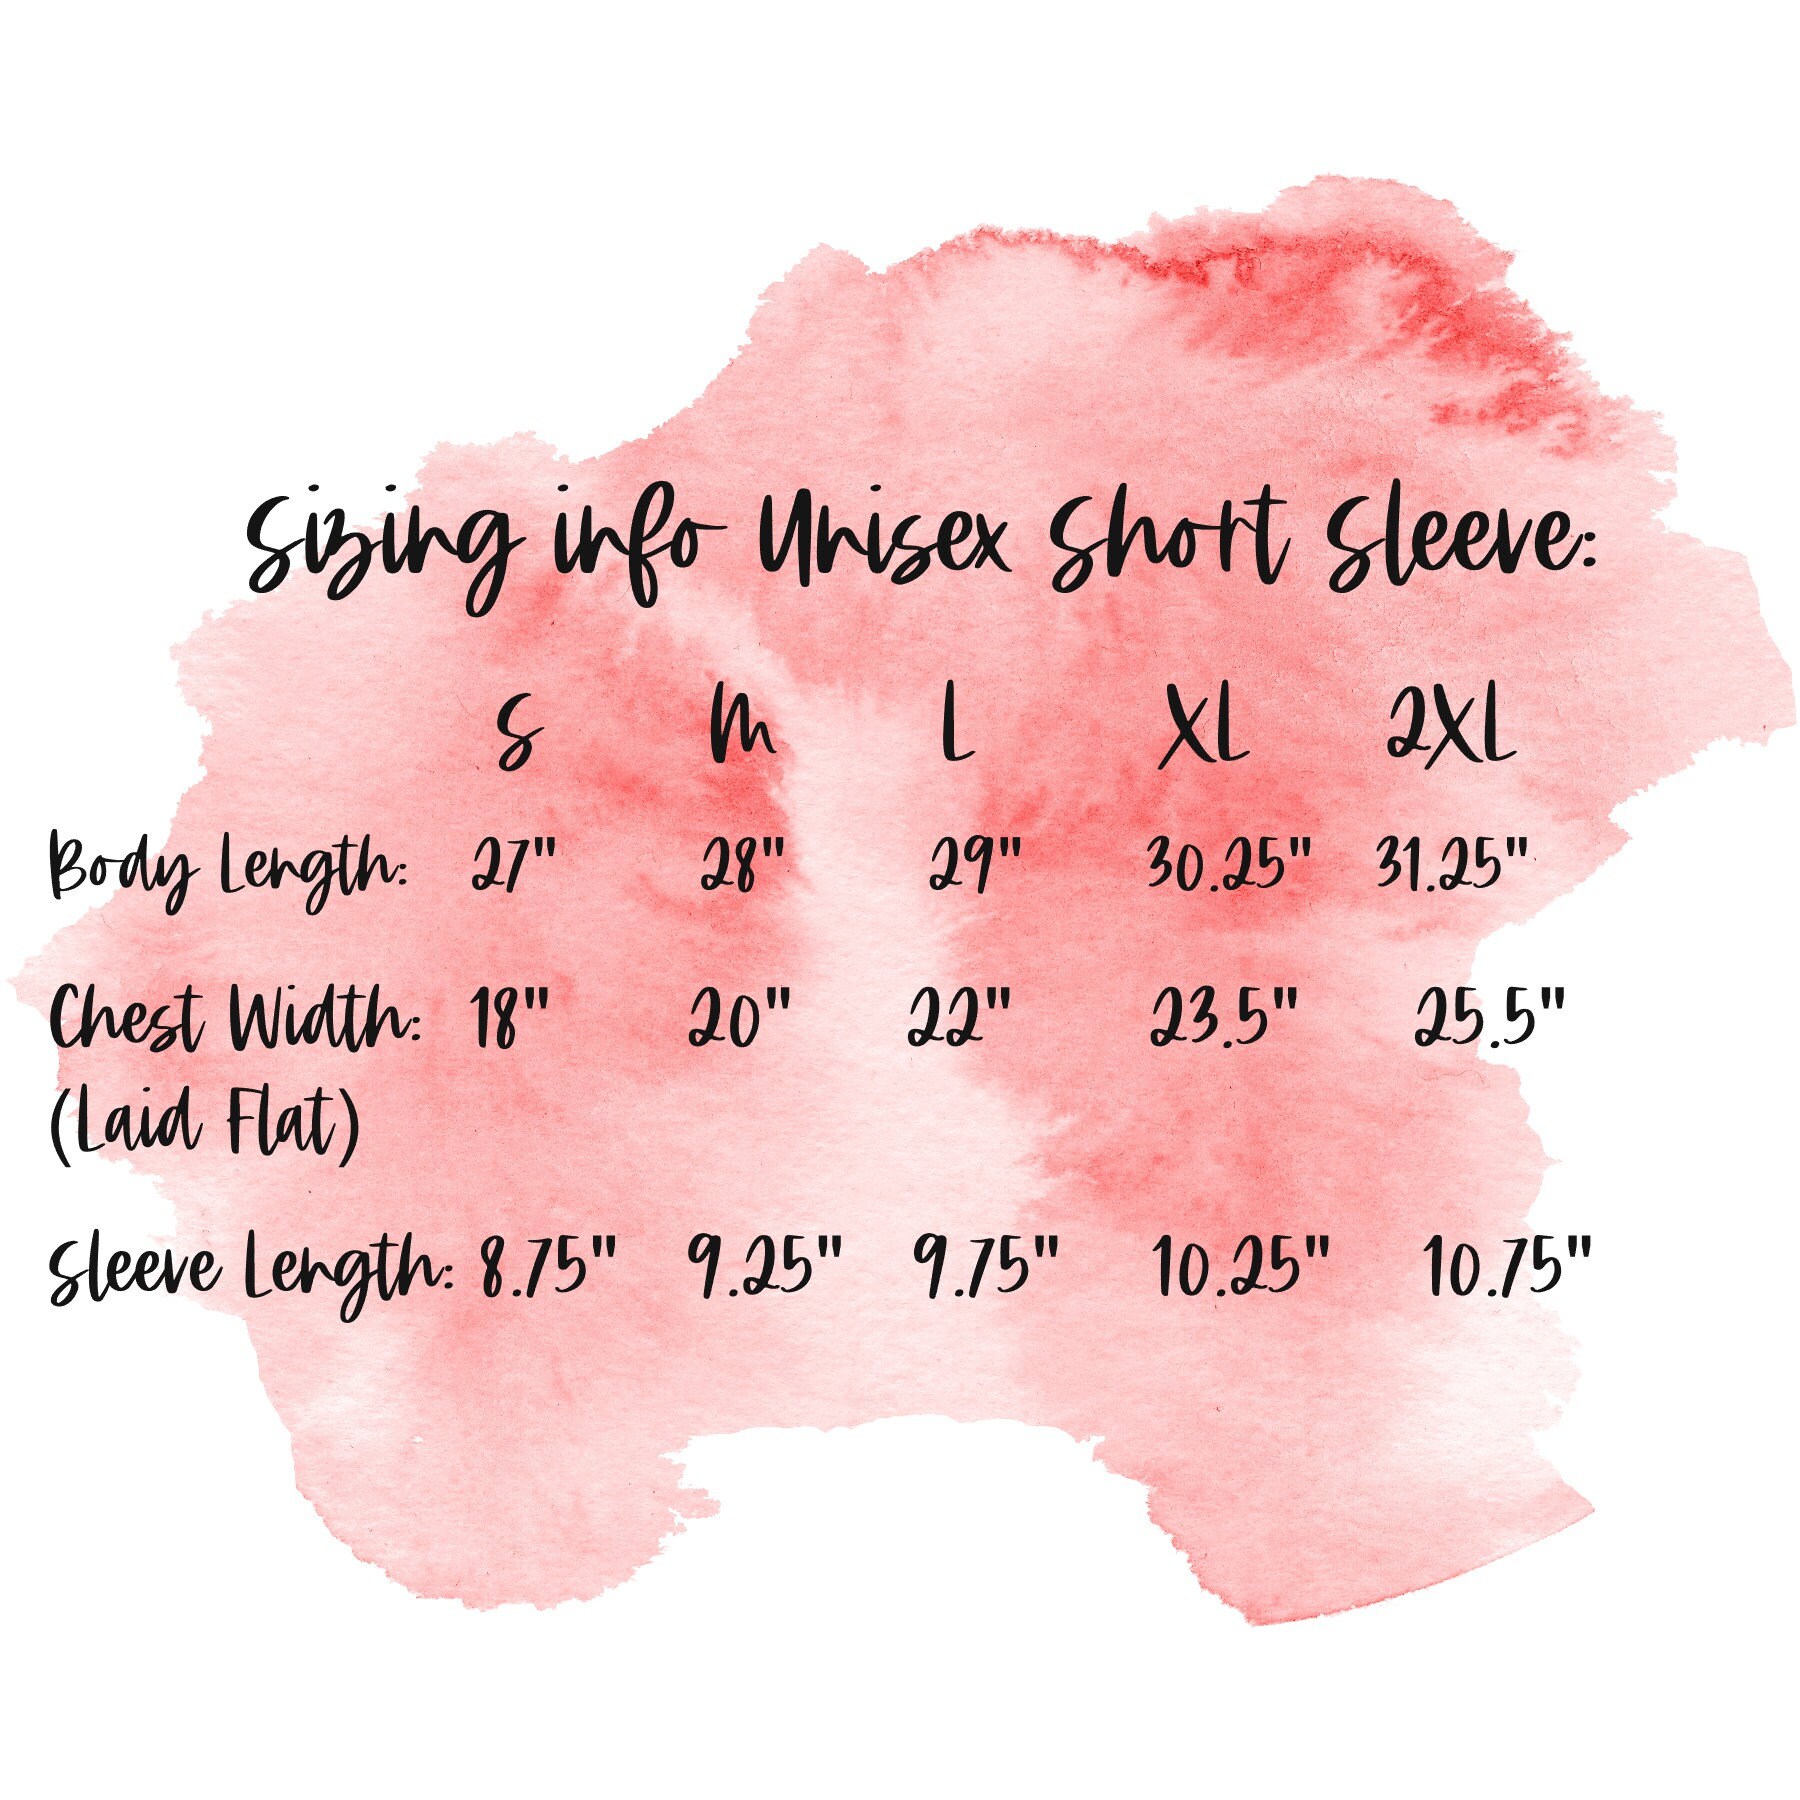 Sizing info Unisex Short Sleeve:
S M L XL 2XL
Body Length: 27" 28" 29" 30.25" 31.25"
Chest Width: 18" 20" 22" 23.5" 25.5"
(Laid Flat)
Sleeve Length: 8.75" 9.25" 9.75" 10.25" 10.75"